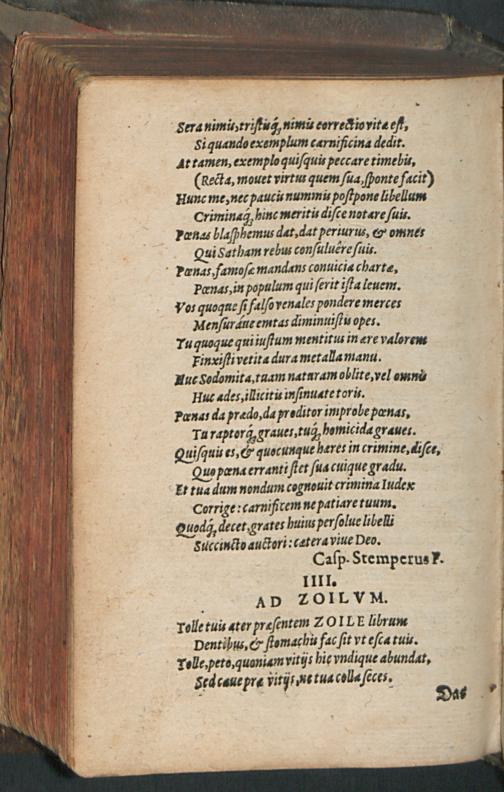 Sera nimis, tristiusq́, nimis correctio vitæ est,
Si quando exemplum carnificina dedit.
At tamen, exemplo quisquis peccare timebis,
(Recta, mouet virtus quem sua, sponte facit)
Hunc me, nec paucis nummis postpone libellum
Criminaq́, hinc meritis disce notare suis.
Pœnas blasphemus dat, dat periurus, & omnes
Qui Satham rebus consuluêre suis.
Pœnas, famosæ mandans conuicia chartæ,
Pœnas, in populum qui serit ista leuem.
Vos quoque si falso venales pondere merces
Mensuráue emtas diminuistis opes.
Tu quoque qui iustum mentitus in ære valorem
Finxisti vetita dura metalla manu.
Huc Sodomita, tuam naturam oblite, vel omnis
Huc ades, illicitis insinuate toris.
Pœnas da prædo, da proditor improbe pœnas,
Tu raptorq́, graues, tuq́, homicida graues.
Quisquis es, & quocunque hæres in crimine, disce,
Quo pœna erranti stet sua cuique gradu.
Et tua dum nondum cognouit crimina Iudex
Corrige: carnificem ne patiare tuum.
Quodq́, decet, grates huius persolue libelli
Succincto auctori: cætera viue Deo.
Casp. Stemperus P.
IIII.
AD ZOILVM.
Tolle tuis ater præsentem ZOILE librum
Dentibus, & stomachis fac sit vt esca tuis.
Tolle, peto, quoniam vitijs hic vndique abundat,
Sed caue præ vitijs, ne tua colla seces.
Das